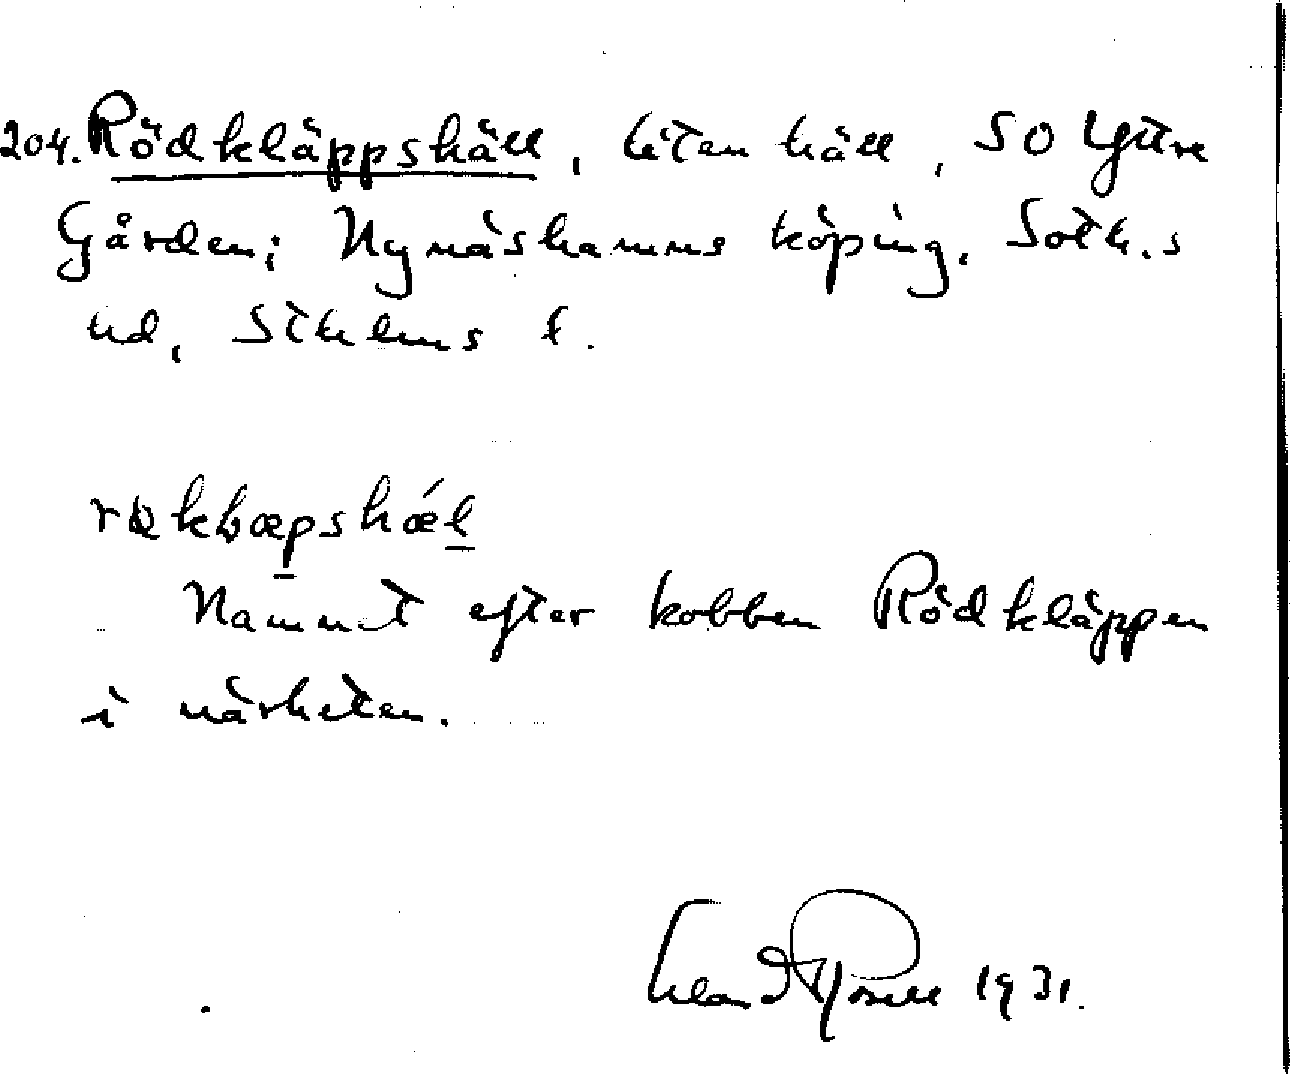 204. Rödkläppshäll, liten häll, SO Yttre
Gården; Nynäshamns köping, Soth.s
hd, Sthlms l.
Namnet efter kobben Rödkläppen
i närheten.
1931.